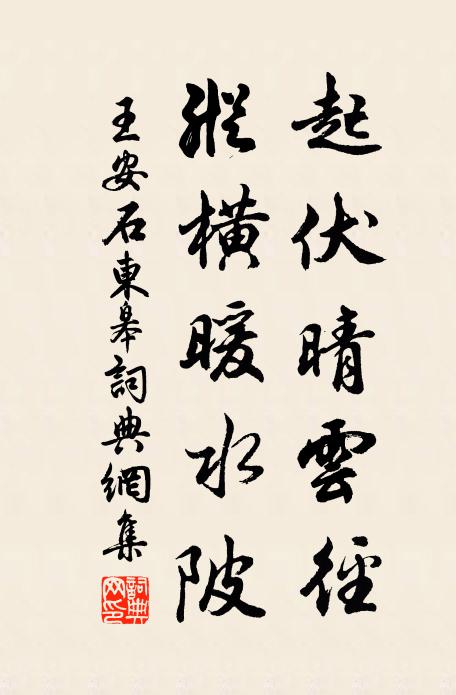 起伏晴雲徑
縱橫暖水陂
王安石東皋詞典網集
詞典網印